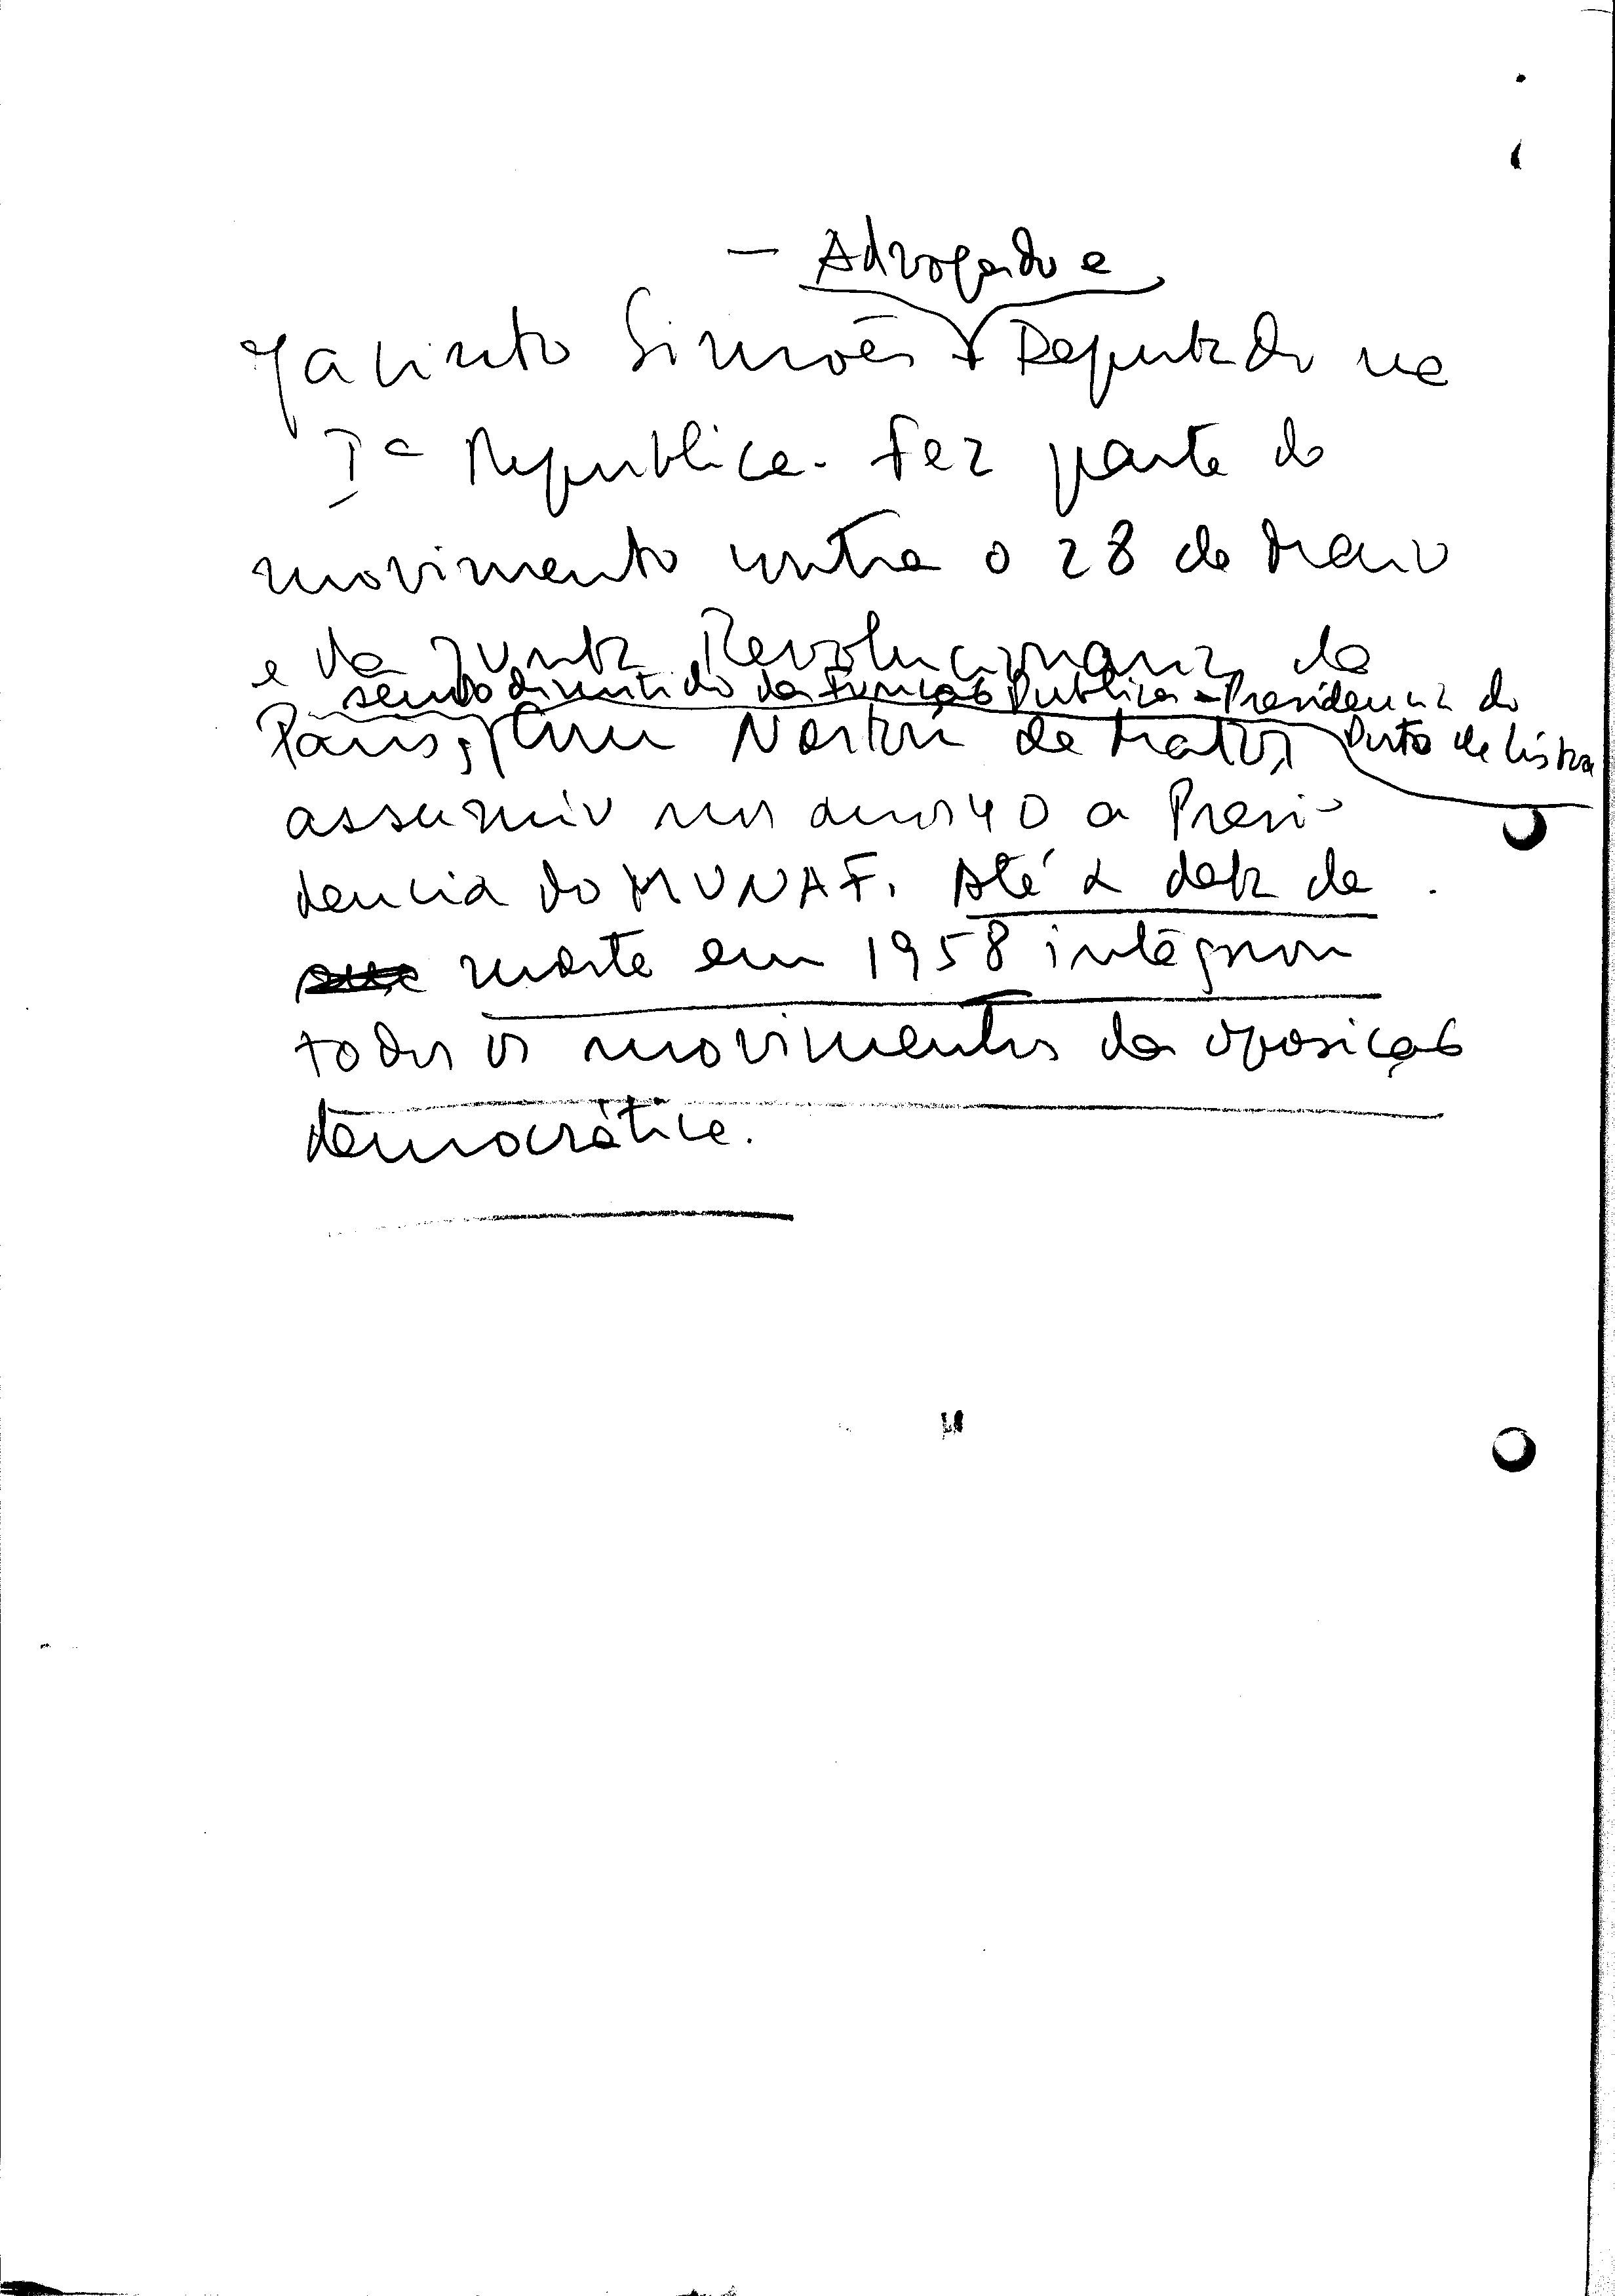 — Advogado e
Jacinto Simões Deputado na
Iª Republica. Fez parte do
movimento contra o 28 de Maio
e da Junta Revolucionaria de
sendo demitido da Função Publica - Presidencia do
Porto de Lisboa
Paris, Com Norton de Matos,
assumiu nos anos 40 a Presi-
dencia do MUNAF. Até à data de
morte em 1958 integrou
todos os movimentos da oposição
democrática.